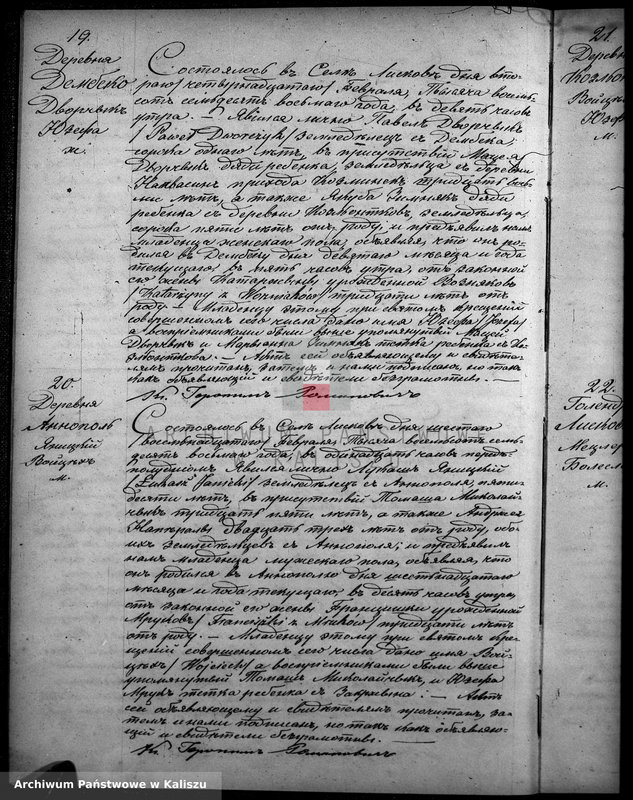 19.
Деревня
Дембско
Дворчикъ
Юзефа
ж.
Состоялось въ Селѣ Лисковѣ дня вто-
раго /четырнадцатаго/ Февраля, тысяча восемь-
сотъ семьдесятъ восьмаго года, въ девять часовъ
утра. — Явился лично Павелъ Дворчикъ
/Paweł Dworczyk/ земледѣлецъ съ Дембска,
сорока одного лѣтъ, въ присутствіи Мацея
Дворчикъ дяди ребенка, земледѣльца съ деревни
Наквасинъ прихода Козминекъ тридцать вось-
ми лѣтъ, а также Якуба Зимнякъ дяди
ребенка съ деревни земледѣльца,
сорока пяти лѣтъ отъ роду, и предъявилъ намъ
младенца женскаго пола, объявляя, что онъ ро-
дился въ Дембску дня девятаго мѣсяца и года
текущаго, въ пять часовъ утра, отъ законной
его жены Катаржины урожденной Возняковъ
/Katarzyny z Woźniaków/ тридцати лѣтъ отъ
роду. — Младенцу этому при святомъ крещеніи
совершенномъ сего числа дано имя Юзефа /Józefa/
а воспріемниками были выше упомянутый Мацей
Дворчикъ и Марьянна Зимнякъ тетка ребенка съ
— Актъ сей объявляющему и свидѣте-
лямъ прочитанъ, затемъ и нами подписанъ, но такъ
какъ объявляющій и свидѣтели безграмотны. —
Кс.
20
Деревня
Аннополь
Яницкій
Войцѣхъ
м.
Состоялось въ Селѣ Лисковѣ дня шестаго
/восемнадцатаго/ Февраля тысяча восемьсотъ семь-
десятъ восьмаго года, въ одинадцать часовъ предъ
полуднемъ. Явился лично Лукашъ Яницкій
/Łukasz Janicki/ земледѣлецъ съ Аннополя, пяти-
десяти лѣтъ, въ присутствіи Томаша Миколай-
чикъ тридцать пяти лѣтъ, а также Андрея
двадцать трехъ лѣтъ отъ роду, обо-
ихъ земледѣльцевъ съ Аннополя; и предъявилъ
намъ младенца мужескаго пола, объявляя, что
онъ родился въ Аннополю дня шестнадцатаго
мѣсяца и года текущаго, въ десять часовъ утра,
отъ законной его жены Францишки урожденной
Мруковъ /Franciszki z Mruków/ тридцати лѣтъ
отъ роду. — Младенцу этому при святомъ кре-
щеніи совершенномъ сего числа дано имя Вой-
цѣхъ /Wojciech/ а воспріемниками были выше
упомянутый Томашъ Миколайчикъ, и Юзефа
Мрукъ тетка ребенка съ — Актъ
сей объявляющему и свидѣтелямъ прочитанъ, за-
темъ и нами подписанъ, но такъ какъ объявляю-
щій и свидѣтели безграмотны. —
Кс.
21.
Деревня
Войцѣхъ
м.
22.
Лисковъ
м.
Archiwum Państwowe w Kaliszu